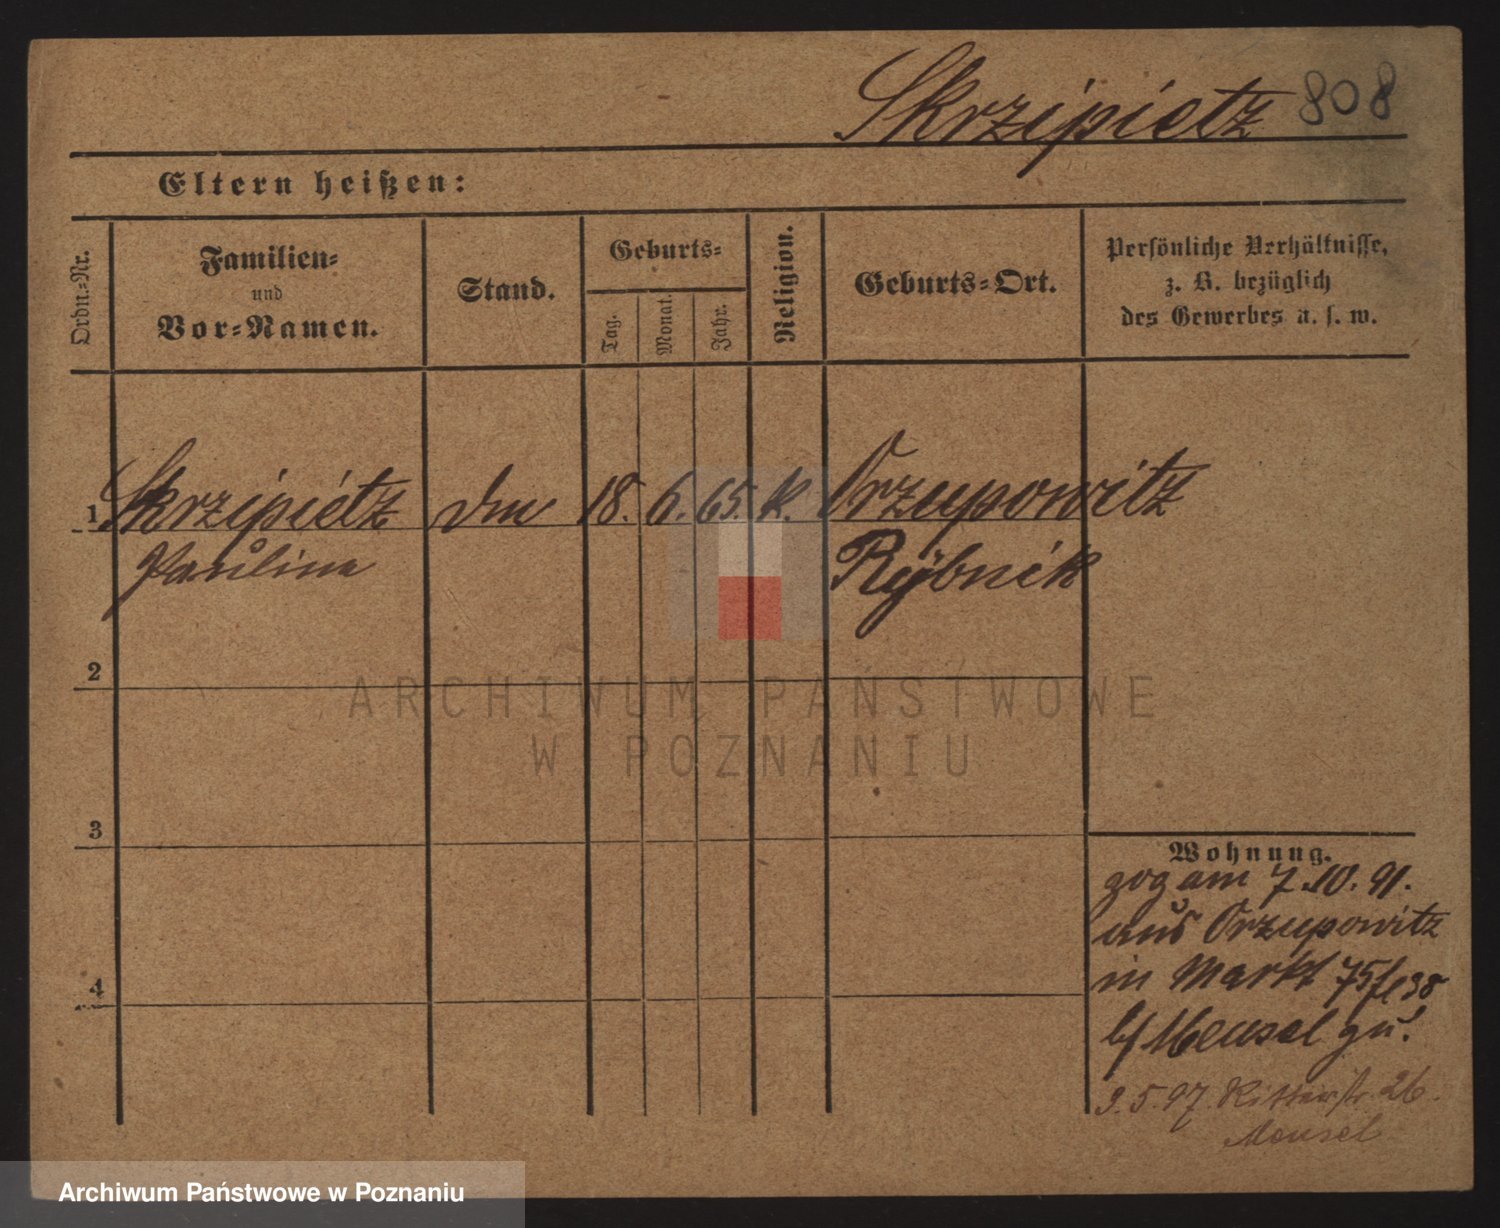 Skrzipietz 808
Eltern heißen:
Ordn.-Nr.
Familien-
und
Vor-Namen.
Stand.
Geburts-
Tag.
Monat.
Jahr.
Religion.
Geburts-Ort.
Persönliche Verhältnisse,
z. B. bezüglich
des Gewerbes u. s. w.
1 Skrzipietz 18. 6. 65. k. Orzupowitz
Paulina Rybnik
2
3
4
Wohnung.
zog am 7.10.91.
aus Orzupowitz
in Markt 75
b/ Meusel zu.
9.5.97. Ritterstr. 26.
Meusel
ARCHIWUM PAŃSTWOWE
W POZNANIU
Archiwum Państwowe w Poznaniu